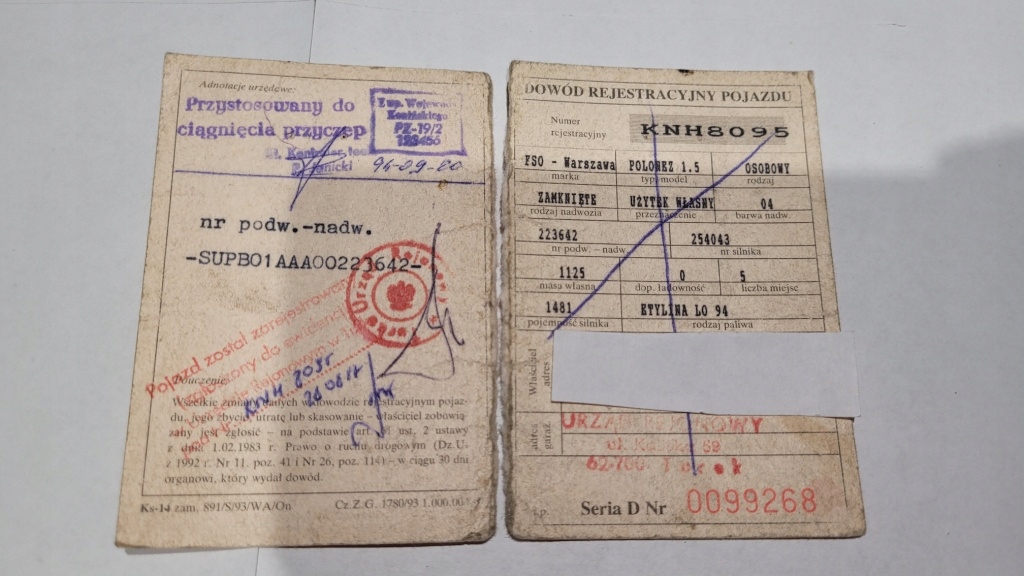 Adnotacje urzędowe:
Przystosowany do
ciągnięcia przyczep
Z up. Wojewody
Konińskiego
PZ-19/2
123466
nr podw.-nadw.
-SUPB01AAA00223642-
Pojazd został zarejestrowany
KNH 8095
Pouczenie:
Wszelkie zmiany danych w dowodzie rejestracyjnym pojaz-
du, jego zbycie, utratę lub skasowanie – właściciel zobowią-
zany jest zgłosić – na podstawie art. ust. 2 ustawy
z dnia 1.02.1983 r. Prawo o ruchu drogowym (Dz.U.
z 1992 r. Nr 11, poz. 41 i Nr 26, poz. 114) – w ciągu 30 dni
organowi, który wydał dowód.
Ks-14 zam. 891/S/93/WA/On Cz.Z.G. 1780/93 1.000.00
DOWÓD REJESTRACYJNY POJAZDU
Numer
rejestracyjny KNH8095
FSO - Warszawa POLONEZ 1.5 OSOBOWY
marka typ/model rodzaj
ZAMKNIĘTE UŻYTEK WŁASNY 04
rodzaj nadwozia przeznaczenie barwa nadw.
223642 254043
nr podw. – nadw. nr silnika
1125 0 5
masa własna dop. ładowność liczba miejsc
1481 ETYLINA LO 94
pojemność silnika rodzaj paliwa
Właściciel
adres
adres
garaż.
URZĄD REJONOWY
62-700 Turek
Seria D Nr 0099268